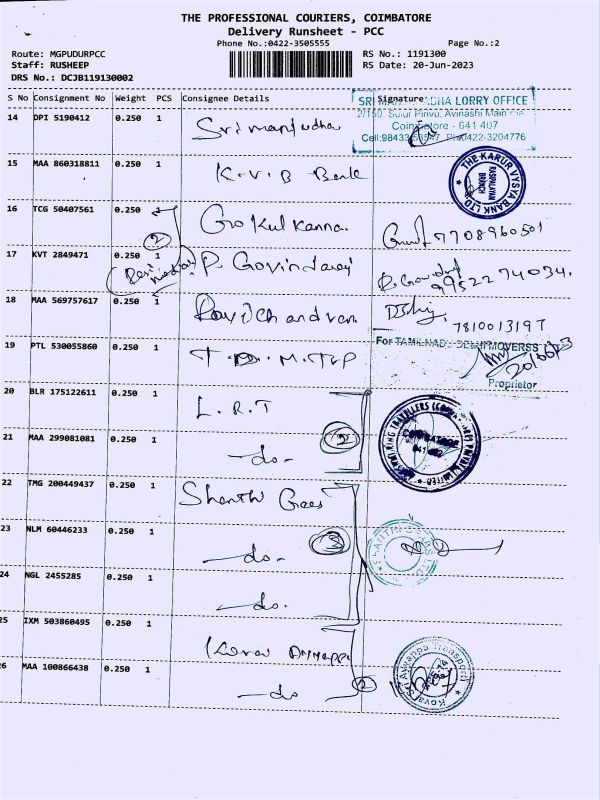 THE PROFESSIONAL COURIERS, COIMBATORE
Delivery Runsheet - PCC
Phone No.:0422-3505555
Page No.:2
Route: MGPUDURPCC
RS No.: 1191300
Staff: RUSHEEP
RS Date: 20-Jun-2023
DRS No.: DCJB119130002
S No Consignment No Weight PCS Consignee Details Signature
SRI LORRY OFFICE
Avinashi Main
Coimbatore - 641 407
14 DPI 5190412 0.250 1
15 MAA 860318811 0.250 1 K.V.B Bank
THE KARUR VYSYA BANK LTD
BRANCH
16 TCG 50407561 0.250 1 Gokul Kanna. 7708960501
2
17 KVT 2849471 0.250 1 P. Govindaraj 9952274034.
18 MAA 569757617 0.250 1 Ravichandran 7810013197
19 PTL 530055860 0.250 1 T.D.M.T&P
For TAMILNADU
Proprietor
20 BLR 175122611 0.250 1 L.R.T
2
COIMBATORE
21 MAA 299081081 0.250 1 -do-
22 TMG 200449437 0.250 1 Shanthi Gears
23 NLM 60446233 0.250 1 -do-
3
24 NGL 2455285 0.250 1 -do-
25 IXM 503860495 0.250 1 Kovai Ayyappa
26 MAA 100866438 0.250 1 -do
2
Kovai Sri Ayyappa Transport